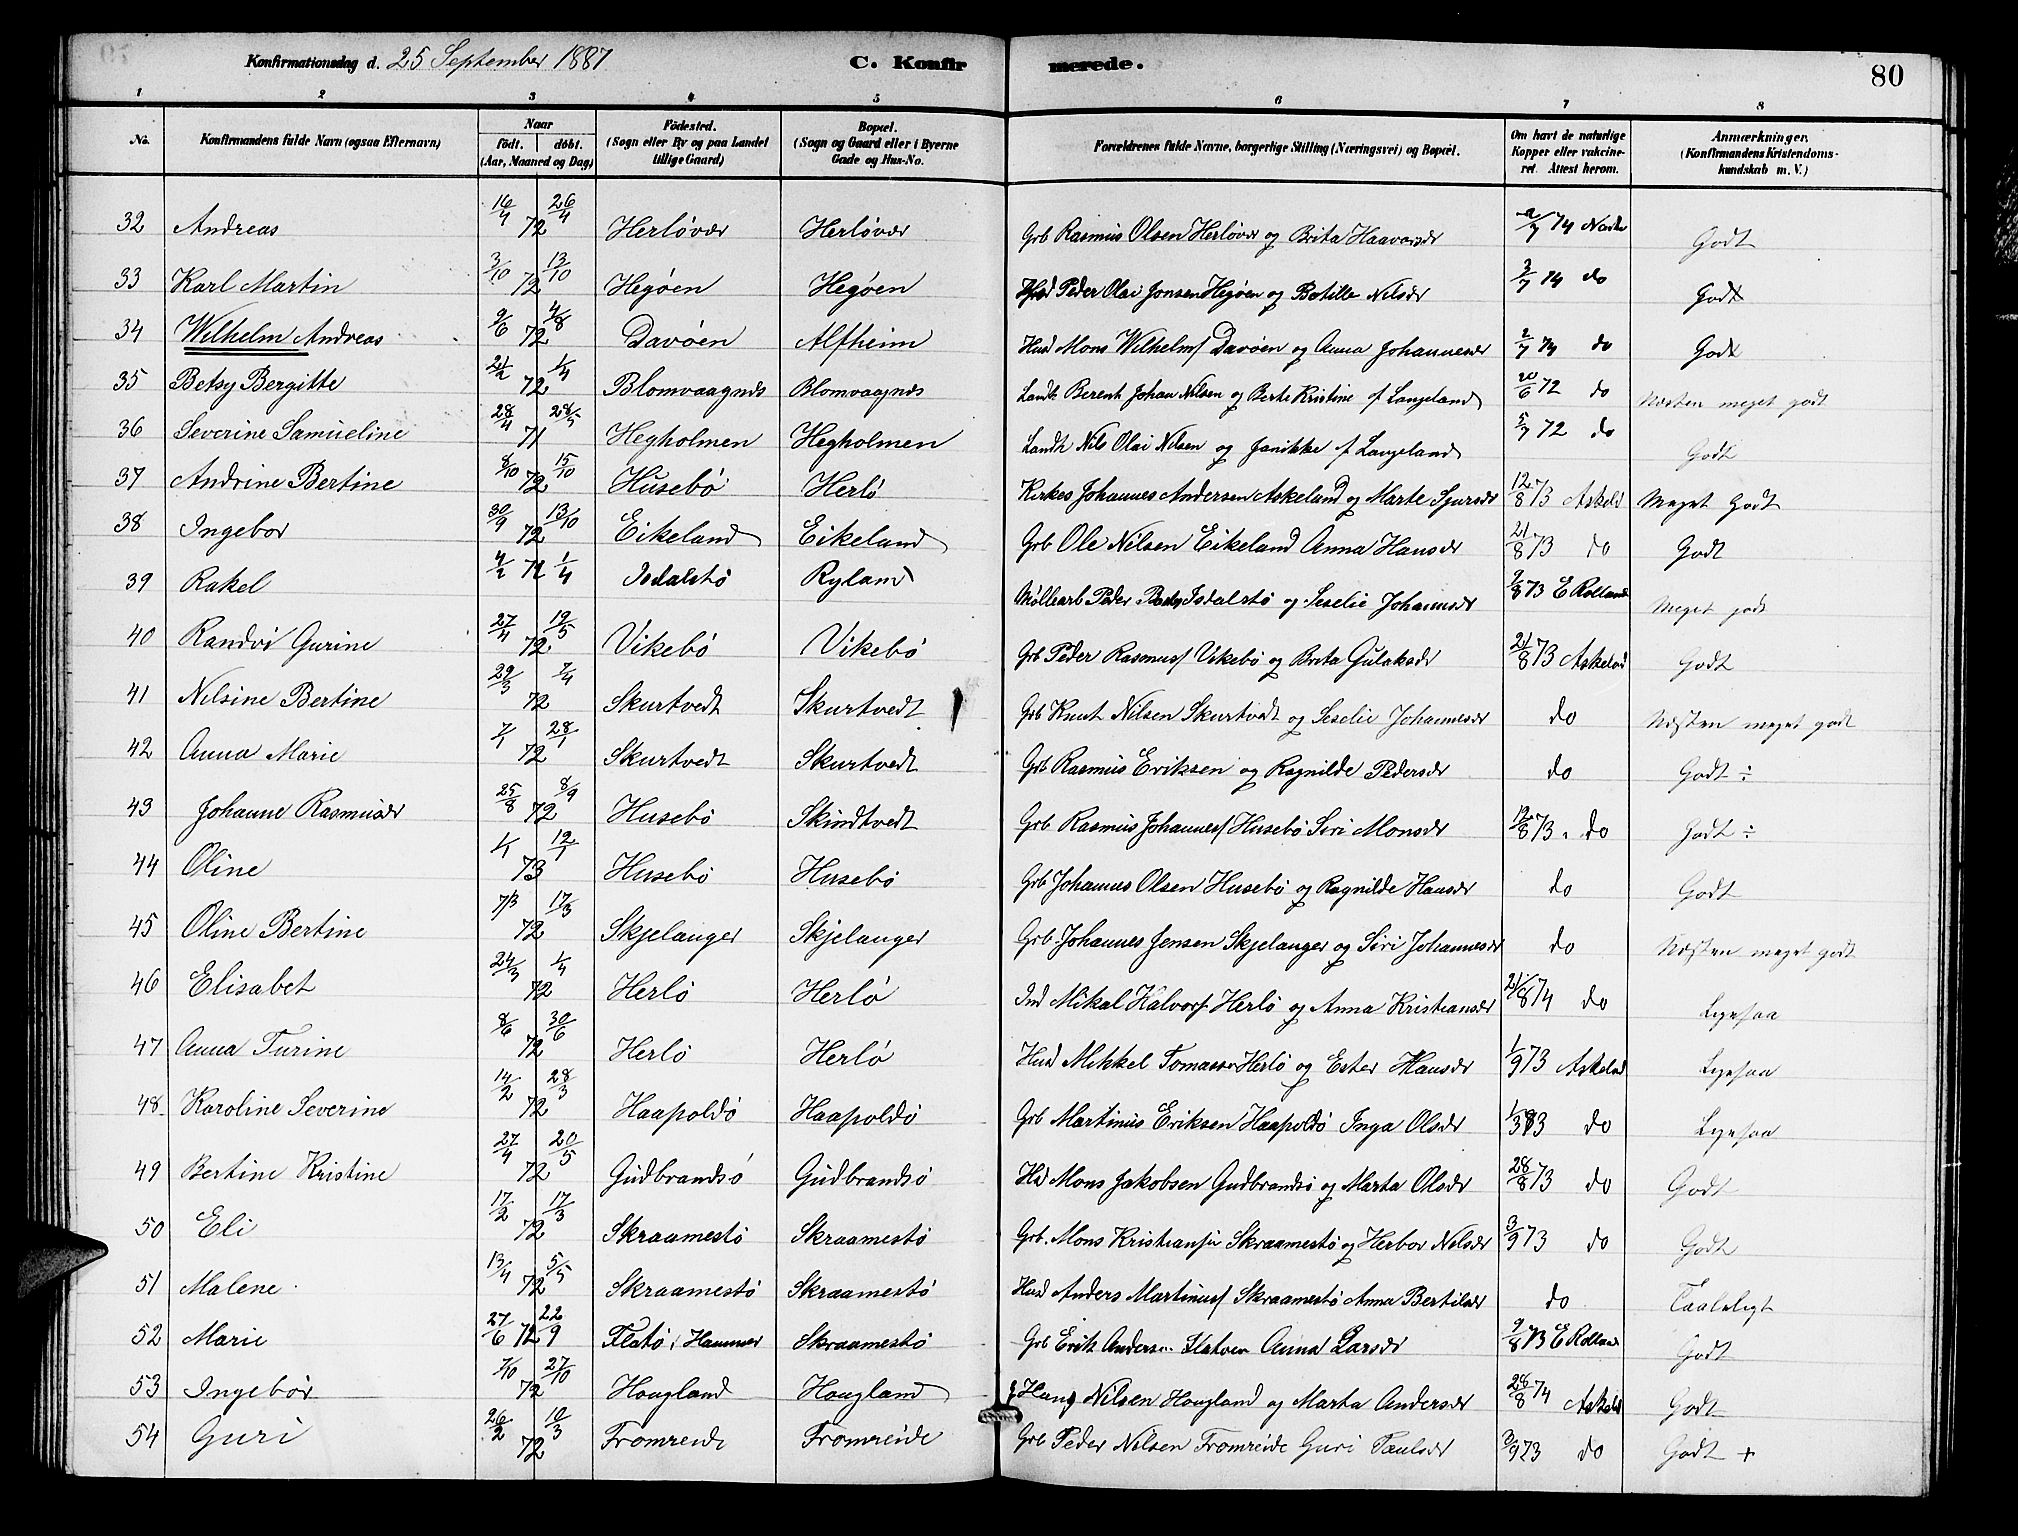 Konfirmationsdag d. 25 September 1887 C. Konfirmerede. 80
1 2 3 4 5 6 7 8
No. Konfirmandens fulde Navn (ogsaa Efternavn) Naar født. døbt. (Aar, Maaned og Dag) Fødested. (Sogn eller By og paa Landet tillige Gaard) Bopæl. (Sogn og Gaard eller i Byerne Gade og Hus-No. Forældrenes fulde Navne, borgerlige Stilling (Næringsvei) og Bopæl. Om havt de naturlige Kopper eller vakcineret. Attest herom. Anmærkninger. (Konfirmandens Kristendomskundskab m. V.)
32 Andreas 16/4 26/4 72 Herløvær Herløvær Grb Rasmus Olsen Herløvær og Brita Haavorsdr 2/7 74 Godt
33 Karl Martin 3/10 13/10 72 Hegøen Hegøen Husd Peder Olai Jonsen Hegøen og Botille Nilsdr 2/7 74 do Godt
34 Wilhelm Andreas 9/6 4/8 72 Davøen Alfheim Husd Mons Wilhelms/ Davøen og Anna Johannesdr 2/7 74 do Godt
35 Betsy Bergitte 21/2 1/4 72 Blomvaagnæs Blomvaagnæs Landh Berent Johan Nilsen og Berte Kristine f Langeland 20/6 72 do Næsten meget godt
36 Severine Samueline 28/4 28/5 71 Hegholmen Hegholmen Landh Nils Olai Nilsen og Janikke f Langeland 5/7 72 do Godt
37 Andrine Bertine 8/10 15/10 72 Husebø Herlø Kirkes Johannes Andersen Askeland og Marte Sjursdr 12/8 73 Askeld Meget Godt
38 Ingebor 30/9 13/10 72 Eikeland Eikeland Grb Ole Nilsen Eikeland Anna Hansdr 21/8 73 do Godt
39 Rakel 4/2 72 1/4 Isdalstø Ryland Møllearb Peder Isdalstø og Seselie Johannsdr 9/8 73 E Rolland Meget godt
40 Randvi Gurine 27/4 19/5 72 Vikebø Vikebø Grb Peder Rasmus/ Vikebø og Brita Gulaksdr 21/8 73 Askeland Godt
41 Nilsine Bertine 29/3 7/4 72 Skurtvedt Skurtvedt Grb Knut Nilsen Skurtvedt og Seselie Johannesdr do Næsten meget godt
42 Anna Marie 1/1 28/1 72 Skurtvedt Skurtvedt Grb Rasmus Eriksen og Ragnilde Pedersdr do Godt ÷
43 Johanne Rasmusdr 25/8 8/9 72 Husebø Skindtvedt Grb Rasmus Johannes/ Husebø Siri Monsdr 12/8 73 do Godt ÷
44 Oline 1/1 12/1 73 Husebø Husebø Grb Johannes Olsen Husebø og Ragnilde Hansdr do Godt
45 Oline Bertine 7/3 17/3 72 Skjelanger Skjelanger Grb. Johannes Jensen Skjelanger og Siri Johannesdr do Næsten meget godt
46 Elisabet 24/3 1/4 72 Herlø Herlø Ind Mikal Halvors/ Herlø og Anna Kristiansdr 21/8 74 do
47 Anna Turine 8/6 30/6 72 Herlø Herlø Husd Mikkel Tomassen Herlø og Ester Hansdr 1/9 73 Askeland
48 Karoline Severine 14/2 28/3 72 Haapoldø Haapoldø Grb Martinus Eriksen Haapoldø Inga Olsdr do
49 Bertine Kristine 27/4 20/5 72 Gudbrandsø Gudbrandsø Hd Mons Jakobsen Gudbrandsø og Marta Olsdr 28/8 73 do Godt
50 Eli 17/2 17/3 72 Skraamestø Skraamestø Grb. Mons Kristiansen Skraamestø og Herbor Nilsdr 3/9 73 do Godt
51 Malene 13/4 5/5 72 Skraamestø Skraamestø Husd Anders Martinus/ Skraamestø Anna Bertilsdr do Taaleligt
52 Marie 27/6 72 22/9 Flatø, Hammer Skraamestø Grb Erik Andersen Flatøen Anna Larsdr 9/8 73 E Rolland Godt
53 Ingebor 7/10 27/10 72 Hougland Hougland Hans Nilsen Hougland og Marta Andersdr 28/8 74 Askeld Godt
54 Guri 26/2 10/3 72 Fromreide Fromreide Grb Peder Nilsen Fromreide Guri Paulsdr 3/9 73 do Godt +